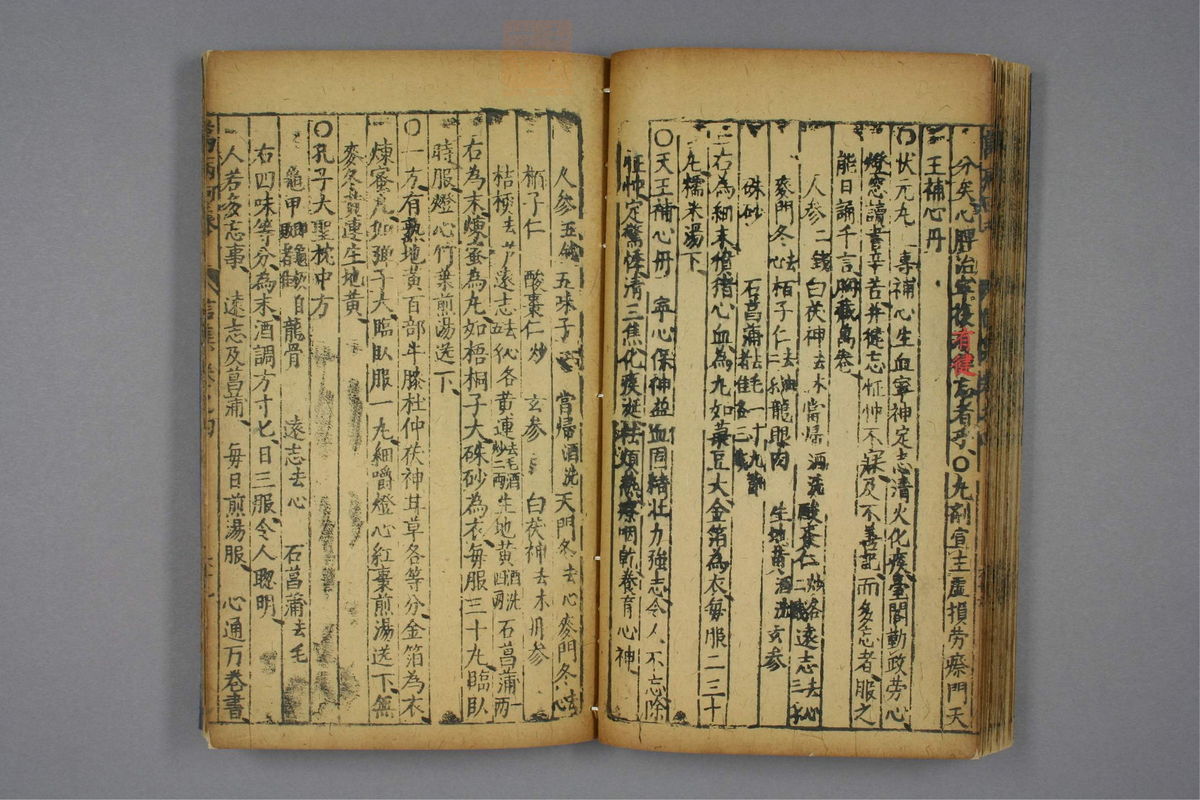 分矣心脾治寧後有健忘者乎○丸劑宜主虛損勞瘵門天
王補心丹
○伏元丸 專補心生血寧神定志清火化痰臺閣勤政勞心
燈窓讀書辛苦并健忘怔忡不寐及不善記而多忘者服之
能日誦千言胸藏萬卷
人參二錢 白茯神去木 當歸酒洗 酸棗仁炒各二錢 遠志去心三
麥門冬去心 栢子仁去油二 龍眼肉 生地黃酒洗 玄參
硃砂 石菖蒲去毛一寸九節者佳各三
右為細末獖猪心血為丸如菉豆大金箔為衣每服二三十
丸糯米湯下
○天王補心丹 寧心保神益血固精壯力強志令人不忘除
怔忡定驚悸清三焦化痰涎祛煩熱療咽乾養育心神
人參五錢 五味子 當歸酒洗 天門冬去心 麥門冬去心
栢子仁 酸棗仁炒 玄參 白茯神去木 丹參
桔梗去芦 遠志去心五 各 黃連去毛酒炒二兩 生地黃酒洗四兩 石菖蒲一兩
右為末煉蜜為丸如梧桐子大硃砂為衣每服三十丸臨臥
時服燈心竹葉煎湯送下
○一方有熟地黃百部牛膝杜仲茯神甘草各等分金箔為衣
煉蜜丸如彈子大臨臥服一丸細嚼燈心紅棗煎湯送下無
麥冬黃連生地黃
○孔子大聖枕中方
龜甲 龍骨 遠志去心 石菖蒲去毛
右四味等分為末酒調方寸匕日三服令人聰明
一人若多忘事 遠志及菖蒲 每日煎湯服 心通万卷書